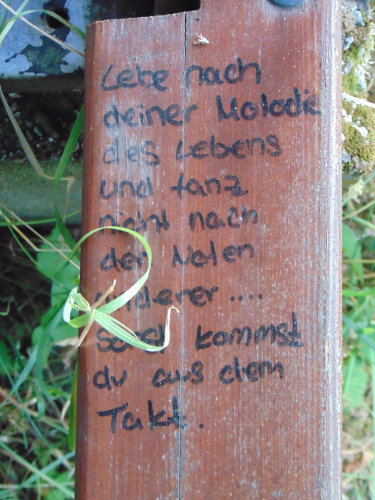 Lebe nach
deiner Melodie
des Lebens
und tanz
nicht nach
den Noten
anderer ....
sonst kommst
du aus dem
Takt.